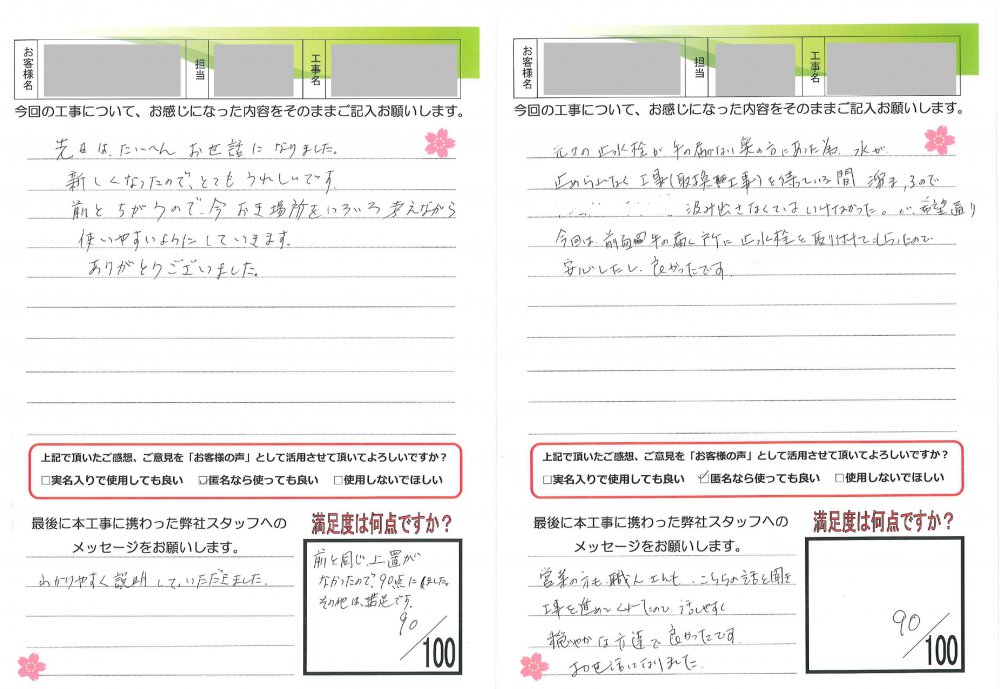 お客様名
担当
工事名
今回の工事について、お感じになった内容をそのままご記入お願いします。
先日は、たいへん お世話になりました。
新しくなったので、とても うれしいです。
前と ちがうので、今 おき場所をいろいろ 考えながら
使いやすいようにしていきます。
ありがとうございました。
上記で頂いたご感想、ご意見を「お客様の声」として活用させて頂いてよろしいですか？
□実名入りで使用しても良い ☑匿名なら使っても良い □使用しないでほしい
最後に本工事に携わった弊社スタッフへの
メッセージをお願いします。
わかりやすく説明していただきました。
満足度は何点ですか？
前と同じ上置が
なかったので90点にしました。
その他は、満足です。
90
/100
お客様名
担当
工事名
今回の工事について、お感じになった内容をそのままご記入お願いします。
元々の止水栓が手の届かない奥の方にあった為、水が
止められなく工事(取換工事)を待っている間 溜まるので
汲み出さなくてはいけなかった。が、希望通り
今回は、前面手の届く所に止水栓を取り付けてもらったので
安心したし、良かったです。
上記で頂いたご感想、ご意見を「お客様の声」として活用させて頂いてよろしいですか？
□実名入りで使用しても良い ☑匿名なら使っても良い □使用しないでほしい
最後に本工事に携わった弊社スタッフへの
メッセージをお願いします。
営業の方も職人さんも、こちらの話を聞き
工事を進めてくれたので 話しやすく
穏やかな方達で良かったです。
お世話になりました。
満足度は何点ですか？
90
/100